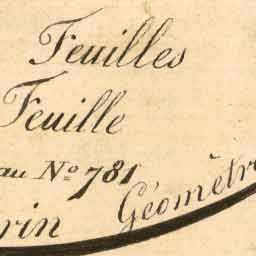 Feuilles
Feuille
au Nº 781
rin Géomètr